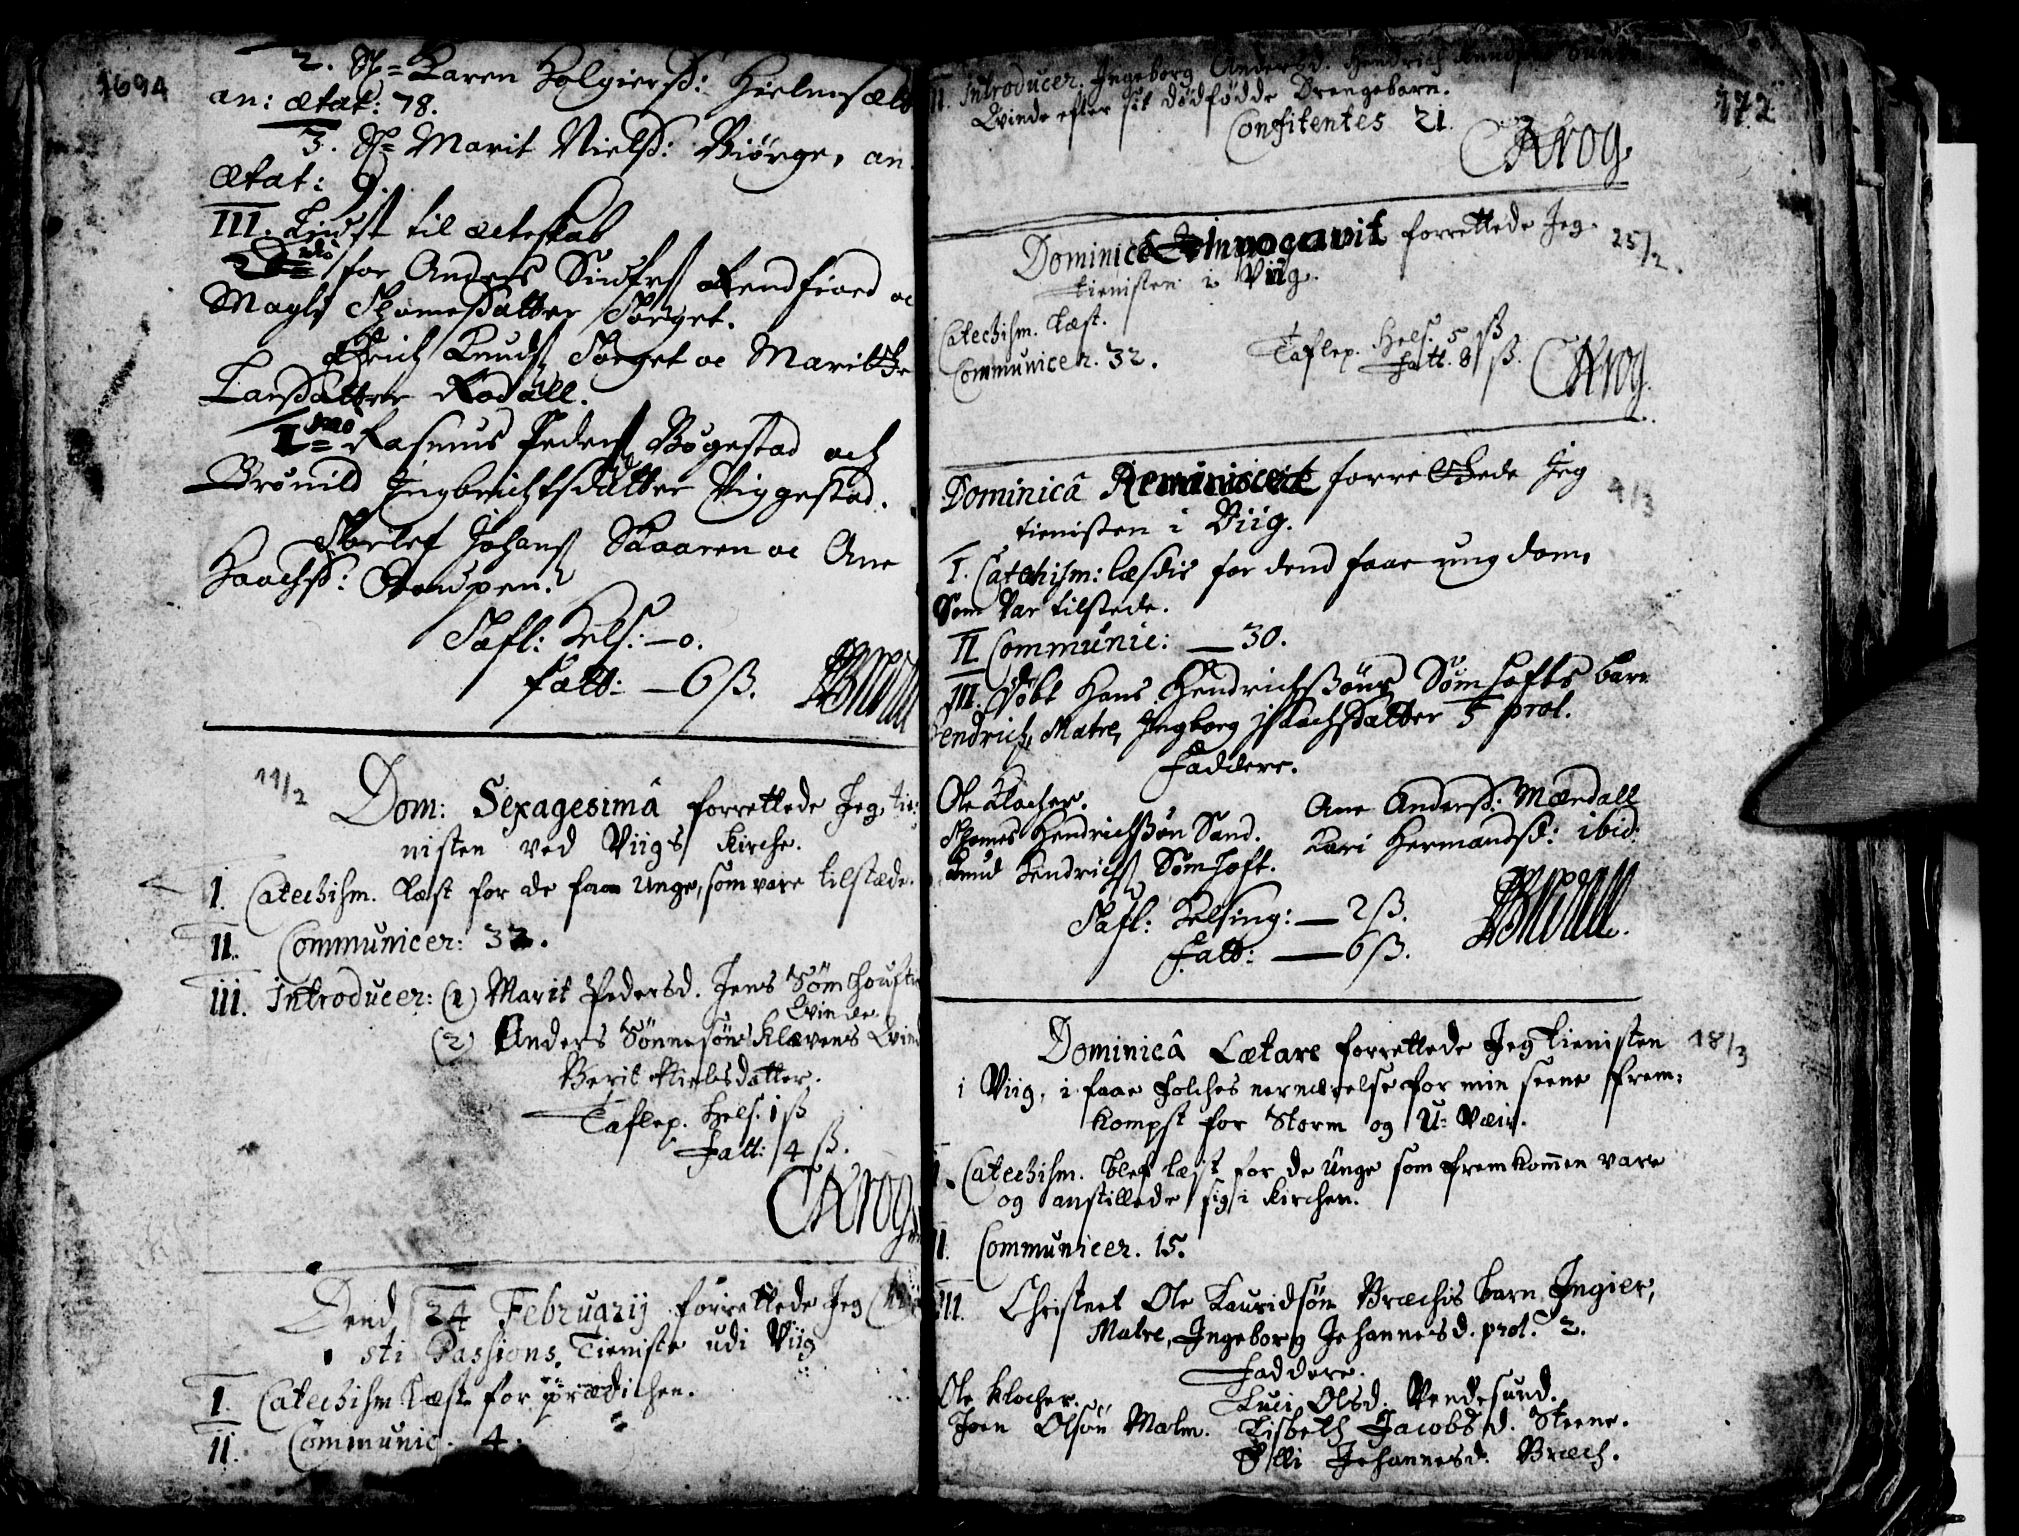 1694
2. Sl= Karen Holgiersd: Hielmsæth
an: ætat: 78.
3. Sl= Marit Nielsd: Biørge, an:
Ætat: 9.
III. Liust til ecteskab
2do for Anders Siufrs Rendfiord oc
Magli Thomesdatter Torget.
Erich Knuds Torget oc Maritte
Larsdatter Rodall.
1mo Rasmus Peders Bøgestad och
Brønild Ingbrichtsdatter Viggestad.
Torlef Johans Skaaren oc Ane
Haachsd:
Tafl: Hels: — 0.
fatt: — 6 ß.
11/2
Dom: Sexagesimâ forrettede Jeg tie:
nisten ved Viigs Kirche.
I. Catechism. læst for de faa Unge, som vare tilstæde.
II. Communicer: 32.
III. Introducer: (1) Marit Pedersd. Jens Sømhoufts
Qvinde.
(2) Anders Sönnesöns Klævens Qvind
Berit Nielsdatter.
Taflep. Hels. 1 ß
Fatt: 4 ß.
CKrog
Dend 24 Februarij forrettede Jeg Chri
sti Passions Tieniste udi Viig
I. Catechism læst for prædichen.
II. Communic. 4.
172
II. Introducer. Ingeborg Andersd. Hendrich
Qvinde efter sit dødfødde Drengebarn.
Confitentes 21.
CKrog.
Dominicâ Invocavit forrettede Jeg 25/2.
tienisten i Viig.
Catechism. læst.
Communicer. 32.
Taflep. Hels. 5 ß
Fatt. 8 ß.
CKrog.
Dominicâ Reminiscere forrettede Jeg 4/3
tienisten i Viig.
I. Catechism: læsdis for dend faae ungdom,
Som Var tilstede.
II Communic: — 30.
III. Døbt Hans Hendrichsöns Sømhofts barn
Hendrich, Matre, Ingborg Isachsdatter 5 prol.
Faddere.
Ole Klocher.
Ane Andersd: Mændall
Thomes Hendrichsøn Sand.
Kari Hermandsd: ibid:
Knud Hendrichs Sømhoft.
Tafl: Helsing: — 2 ß.
Fatt: — 6 ß.
Dominicâ Lætare forrettede Jeg Tienisten 18/3
i Viig, i faae folches nerværelse for min seene frem:
kompst for Storm og U: Væir.
I. Catechism. blef læst for de Unge som fremkom̄en vare
og anstillede sig i kirchen.
II. Communicer. 15.
III. Christnet Ole Lauridsön Bræchis barn Ingier,
Matre, Ingeborg Johannesd. prol. 2.
Faddere.
Ole Klocher.
Luci Olsd. Vendesund.
Joen Olsön Malm.
Lisbeth Jacobsd. Steene.
Johannesd. Bræch.